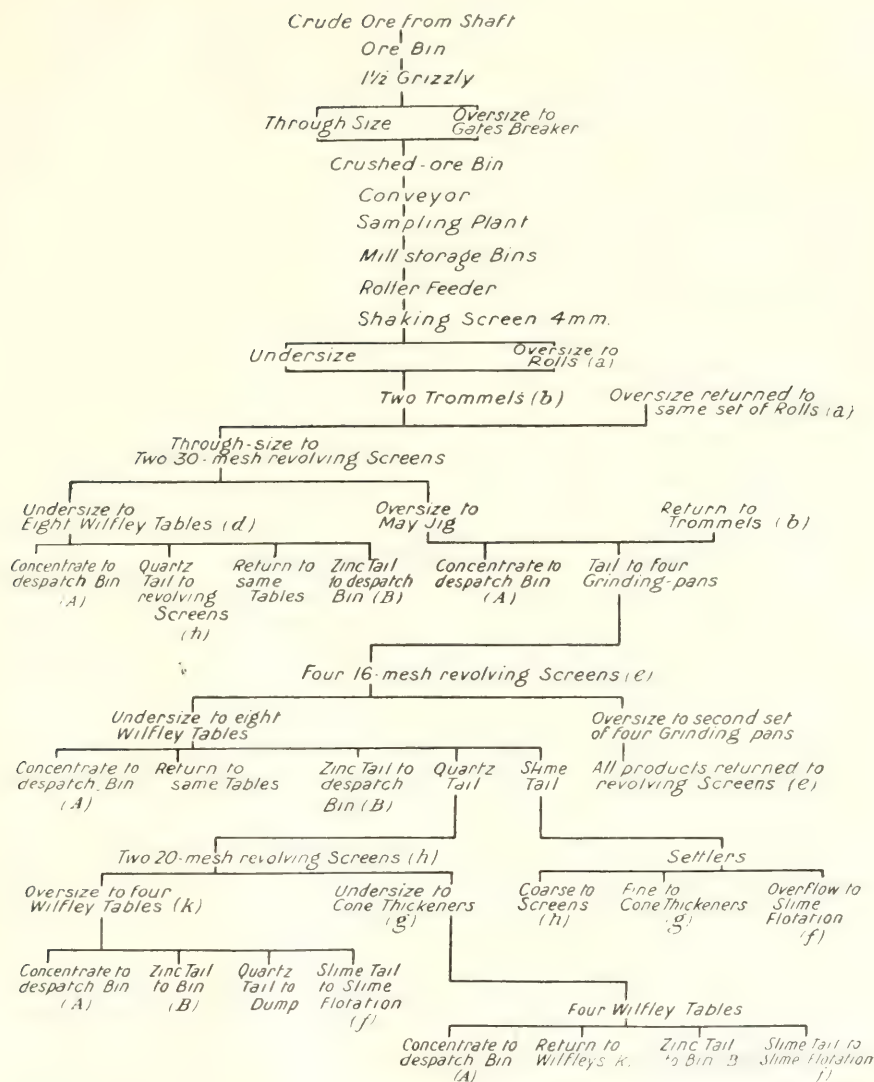 Crude Ore from Shaft
Ore Bin
1½ Grizzly
Through Size
Oversize to
Gates Breaker
Crushed-ore Bin
Conveyor
Sampling Plant
Mill storage Bins
Roller Feeder
Shaking Screen 4mm.
Undersize
Oversize to
Rolls (a)
Two Trommels (b)
Oversize returned to
same set of Rolls (a)
Through-size to
Two 30-mesh revolving Screens
Undersize to
Eight Wilfley Tables (d)
Oversize to
May Jig
Return to
Trommels (b)
Concentrate to
despatch Bin
(A)
Quartz
Tail to
revolving
Screens
(h)
Return to
same
Tables
Zinc Tail
to despatch
Bin (B)
Concentrate to
despatch Bin
(A)
Tail to four
Grinding-pans
Four 16-mesh revolving Screens (e)
Undersize to eight
Wilfley Tables
Oversize to second set
of four Grinding pans
Concentrate to
despatch Bin
(A)
Return to
same Tables
Zinc Tail to
despatch
Bin (B)
Quartz
Tail
Slime
Tail
All products returned to
revolving Screens (e)
Two 20-mesh revolving Screens (h)
Settlers
Oversize to four
Wilfley Tables (k)
Undersize to
Cone Thickeners
(g)
Coarse to
Screens
(h)
Fine to
Cone Thickeners
(g)
Overflow to
Slime
Flotation
(f)
Concentrate to
despatch Bin
(A)
Zinc Tail
to Bin
(B)
Quartz
Tail to
Dump
Slime Tail
to Slime
Flotation
(f)
Four Wilfley Tables
Concentrate to
despatch Bin
(A)
Return to
Wilfleys k.
Zinc Tail
to Bin B
Slime Tail to
Slime Flotation
f)